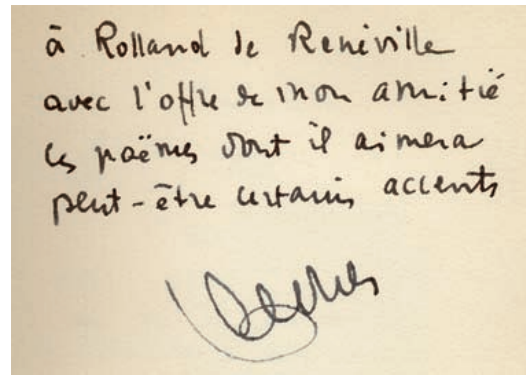 à Rolland de Renéville
avec l'offre de mon amitié
ces poëmes dont il aimera
peut-être certains accents